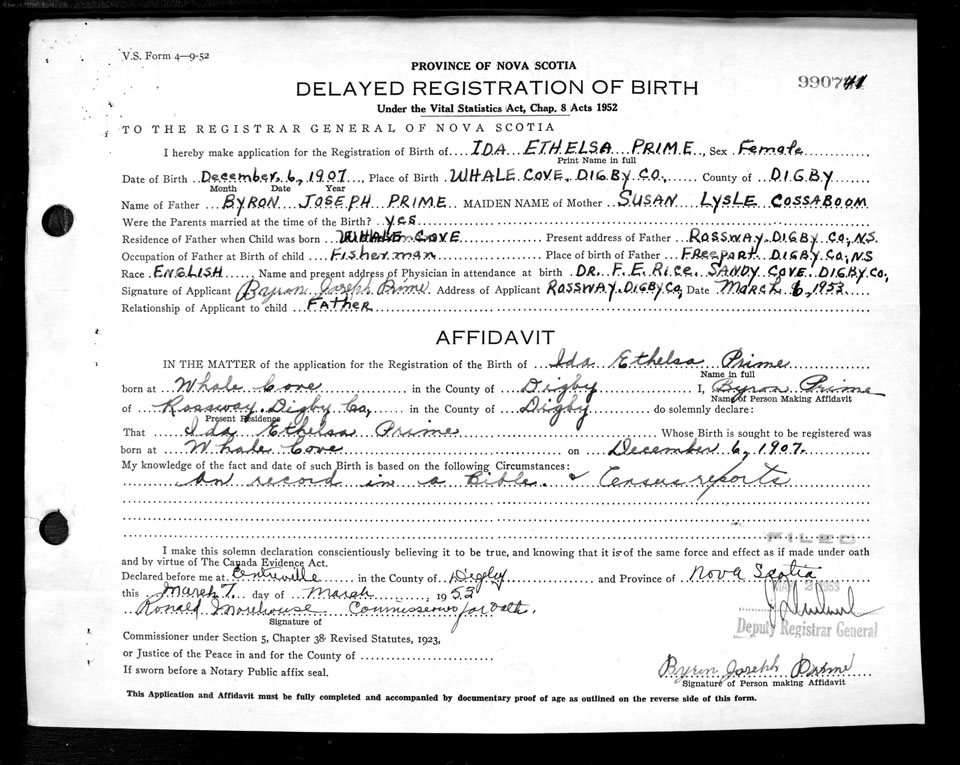 V.S. Form 4—9-52
PROVINCE OF NOVA SCOTIA
DELAYED REGISTRATION OF BIRTH
990741
Under the Vital Statistics Act, Chap. 8 Acts 1952
TO THE REGISTRAR GENERAL OF NOVA SCOTIA
I hereby make application for the Registration of Birth of IDA ETHELSA PRIME, Sex Female
Print Name in full
Date of Birth December, 6, 1907, Place of Birth WHALE COVE, DIGBY CO., County of DIGBY
Month Date Year
Name of Father BYRON JOSEPH PRIME MAIDEN NAME of Mother SUSAN LYSLE COSSABOOM
Were the Parents married at the time of the Birth? yes
Residence of Father when Child was born WHALE COVE Present address of Father ROSSWAY. DIGBY CO., N.S.
Occupation of Father at Birth of child Fisherman Place of birth of Father FREEPORT. DIGBY CO., NS
Race ENGLISH, Name and present address of Physician in attendance at birth DR. F. E. RICE. SANDY COVE. DIGBY CO,
Signature of Applicant Byron Joseph Prime Address of Applicant ROSSWAY. DIGBY CO, Date MARCH 6, 1953
Relationship of Applicant to child FATHER
AFFIDAVIT
IN THE MATTER of the application for the Registration of the Birth of Ida Ethelsa Prime
Name in full
born at Whale Cove in the County of Digby I, Byron Prime
Name of Person Making Affidavit
of Rossway. Digby Co, in the County of Digby do solemnly declare:
Present Residence
That Ida Ethelsa Prime Whose Birth is sought to be registered was
born at Whale Cove on December 6, 1907.
My knowledge of the fact and date of such Birth is based on the following Circumstances:
An record in a Bible. & Census reports
FILED
I make this solemn declaration conscientiously believing it to be true, and knowing that it is of the same force and effect as if made under oath
and by virtue of The Canada Evidence Act.
Declared before me at Centreville in the County of Digby and Province of Nova Scotia
this March 7. day of March, 1953
Ronald Morehouse Commissioner for Oath.
Signature of
Deputy Registrar General
Commissioner under Section 5, Chapter 38 Revised Statutes, 1923,
or Justice of the Peace in and for the County of
If sworn before a Notary Public affix seal.
Byron Joseph Prime
Signature of Person making Affidavit
This Application and Affidavit must be fully completed and accompanied by documentary proof of age as outlined on the reverse side of this form.